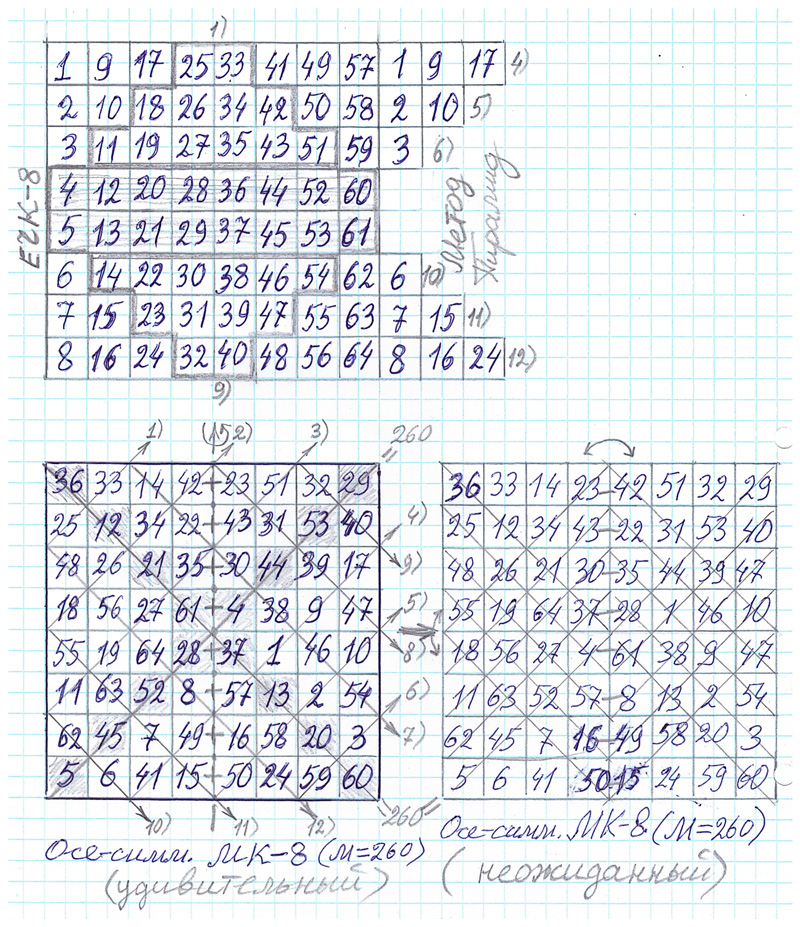 1)
1 9 17 25 33 41 49 57 1 9 17 4)
2 10 18 26 34 42 50 58 2 10 5)
3 11 19 27 35 43 51 59 3 6)
4 12 20 28 36 44 52 60
5 13 21 29 37 45 53 61
6 14 22 30 38 46 54 62 6 10)
7 15 23 31 39 47 55 63 7 15 11)
8 16 24 32 40 48 56 64 8 16 24 12)
9)
ЕЧК-8
Метод
Пирамид
1) 2) 3) 260
36 33 14 42 23 51 32 29
25 12 34 22 43 31 53 40 4)
48 26 21 35 30 44 39 17 9)
18 56 27 61 4 38 9 47 5)
55 19 64 28 37 1 46 10 8)
11 63 52 8 57 13 2 54 6)
62 45 7 49 16 58 20 3 7)
5 6 41 15 50 24 59 60
10) 11) 12) 260
Осе-симм. МК-8 (М=260)
(удивительный)
36 33 14 23 42 51 32 29
25 12 34 43 22 31 53 40
48 26 21 30 35 44 39 47
55 19 64 37 28 1 46 10
18 56 27 4 61 38 9 47
11 63 52 57 8 13 2 54
62 45 7 16 49 58 20 3
5 6 41 50 15 24 59 60
Осе-симм. МК-8 (М=260)
(неожиданный)